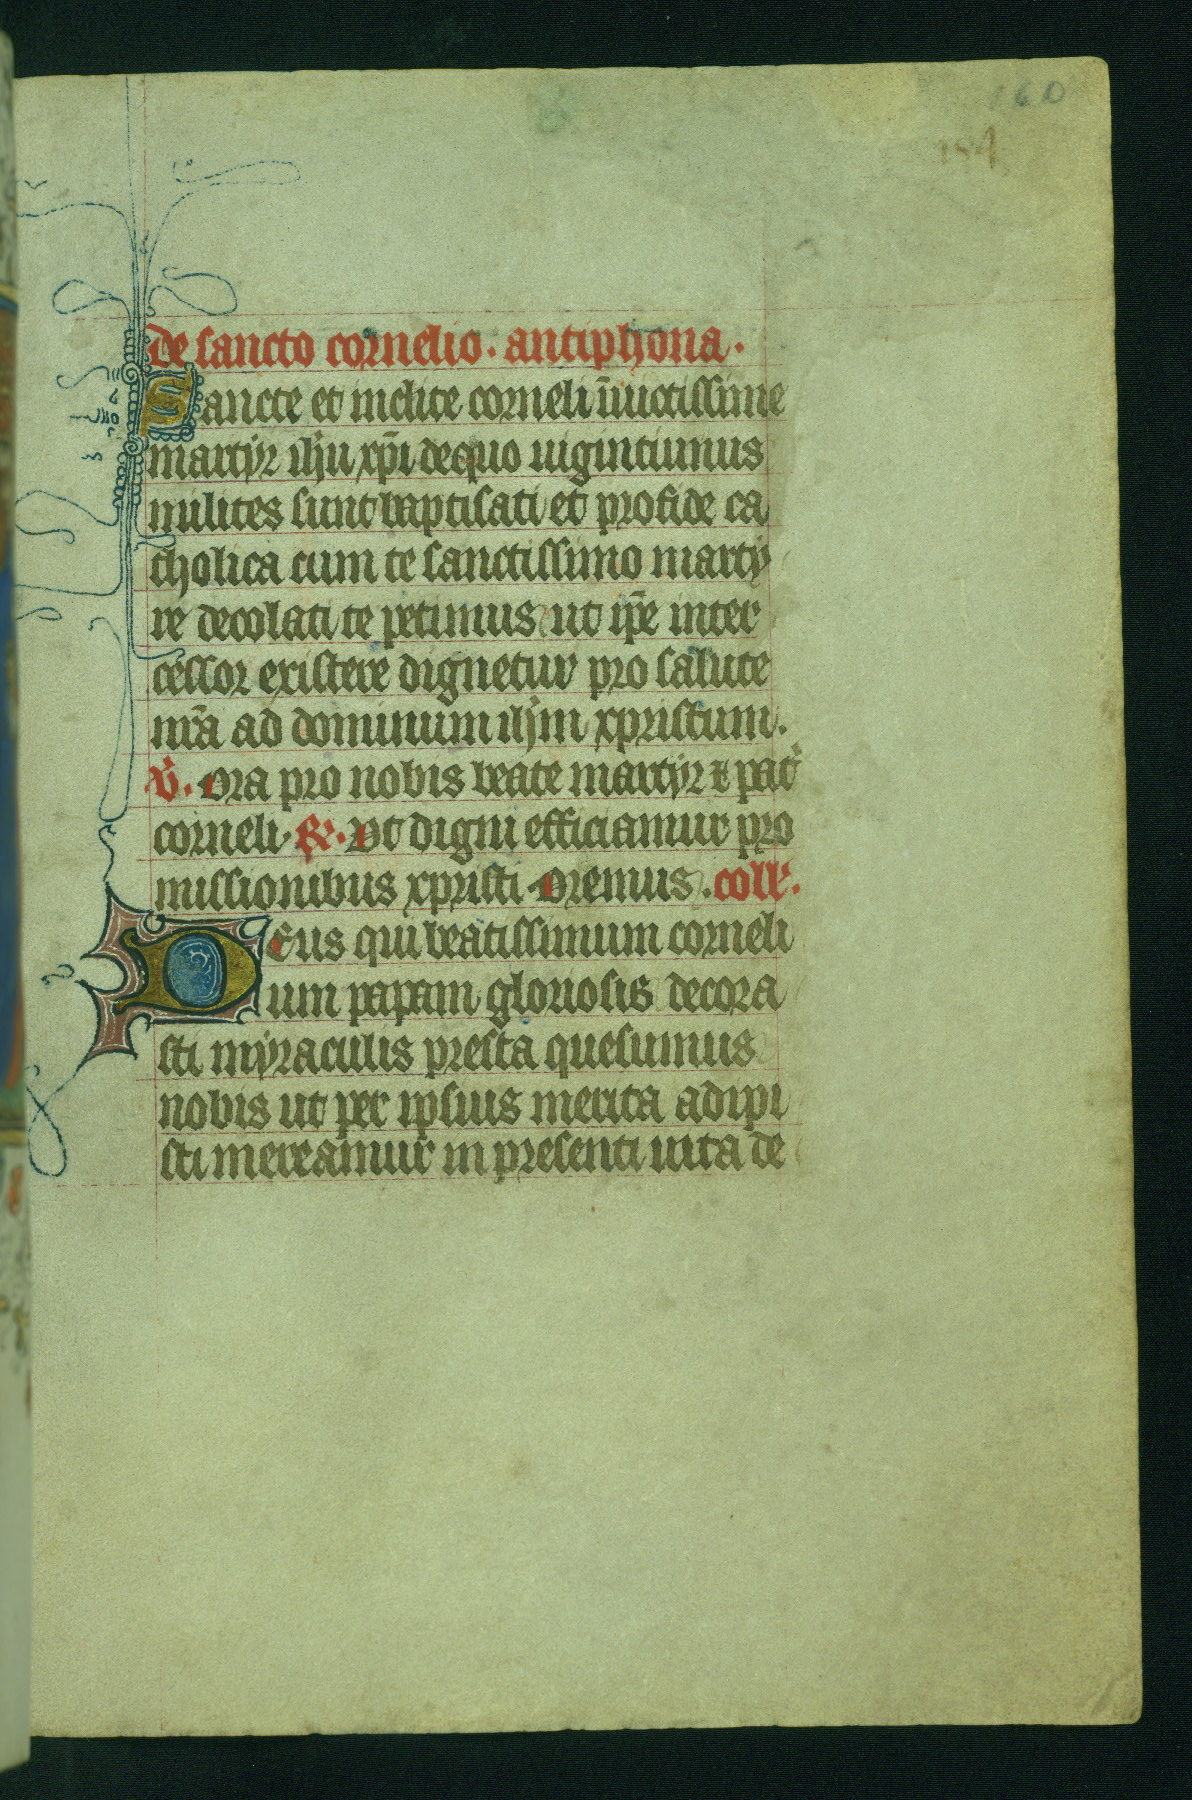 160
184
de sancto cornelio. antiphona.
Sancte et inclite corneli īuictissime
martyr ihu xp̄i dequo uigintiunus
milites sunt baptisati et profide ca
tholica cum te sanctissimo marty
re decolati te petimus ut ip̄e inter
cessor existere dignetur pro salute
nr̄a ad dominum ihm xpristum.
V. Ora pro nobis beate martyr & pat̉
corneli. R. Vt digni efficiamur pro
missionibus xpristi. Oremus. coll'.
Deus qui beatissimum corneli
um papam gloriosis decora
sti myraculis presta quesumus
nobis ut per ipsius merita adipi
sti mereamur in presenti uita de